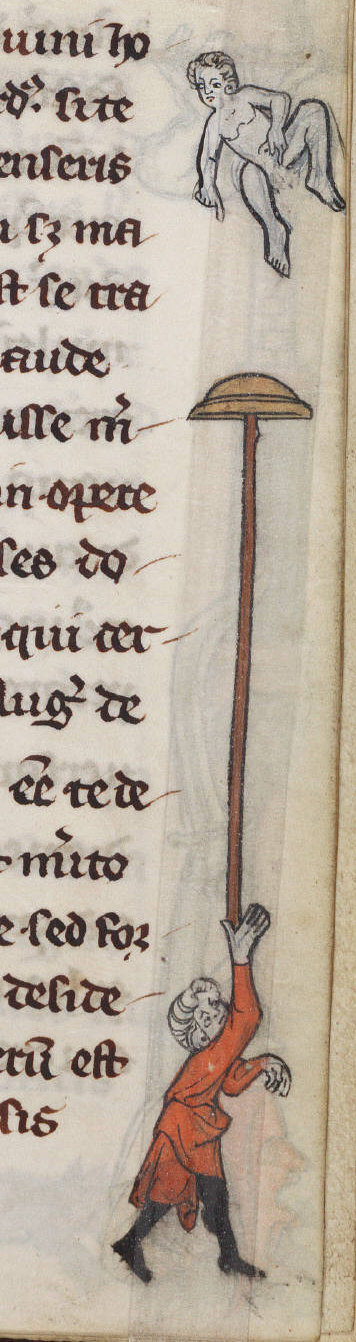 uini ho
site
enseris
sz ma
st se tra
aude
uisse m̄
in opere
ses do
qui cer
Aug̾ de
ēē te de
mito
e sed for
deside
erū est
sis